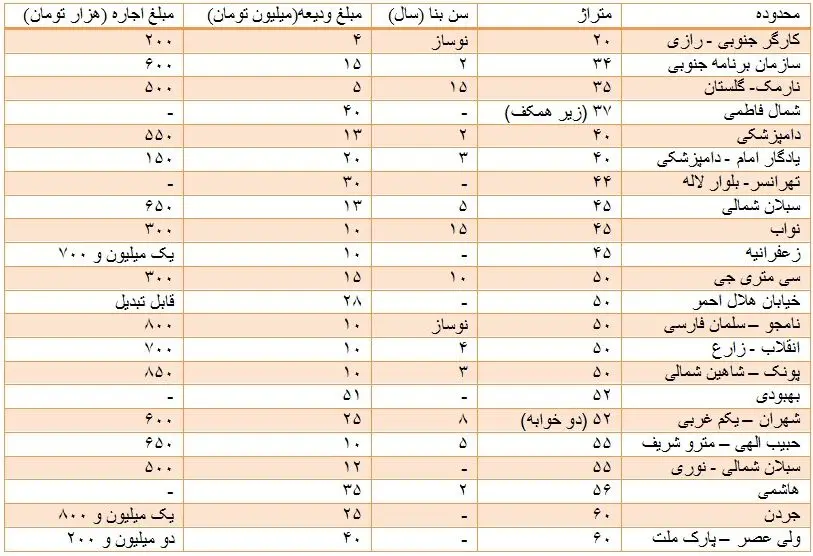 محدوده متراژ سن بنا (سال) مبلغ ودیعه(میلیون تومان) مبلغ اجاره (هزار تومان)
کارگر جنوبی - رازی ۲۰ نوساز ۴ ۲۰۰
سازمان برنامه جنوبی ۳۴ ۲ ۱۵ ۶۰۰
نارمک- گلستان ۳۵ ۱۵ ۵ ۵۰۰
شمال فاطمی ۳۷ (زیر همکف) - ۴۰ -
دامپزشکی ۴۰ ۲ ۱۳ ۵۵۰
یادگار امام - دامپزشکی ۴۰ ۳ ۲۰ ۱۵۰
تهرانسر- بلوار لاله ۴۴ - ۳۰ -
سبلان شمالی ۴۵ ۵ ۱۳ ۶۵۰
نواب ۴۵ ۱۵ ۱۰ ۳۰۰
زعفرانیه ۴۵ - ۱۰ یک میلیون و ۷۰۰
سی متری جی ۵۰ ۱۰ ۱۵ ۳۰۰
خیابان هلال احمر ۵۰ - ۲۸ قابل تبدیل
نامجو – سلمان فارسی ۵۰ نوساز ۱۰ ۸۰۰
انقلاب - زارع ۵۰ ۴ ۱۰ ۷۰۰
پونک – شاهین شمالی ۵۰ ۳ ۱۰ ۸۵۰
بهبودی ۵۲ - ۵۱ -
شهران – یکم غربی ۵۲ (دو خوابه) ۸ ۲۵ ۶۰۰
حبیب الهی – مترو شریف ۵۵ ۵ ۱۰ ۶۵۰
سبلان شمالی - نوری ۵۵ - ۱۲ ۵۰۰
هاشمی ۵۶ ۲ ۳۵ -
جردن ۶۰ - ۲۵ یک میلیون و ۸۰۰
ولی عصر – پارک ملت ۶۰ - ۴۰ دو میلیون و ۲۰۰